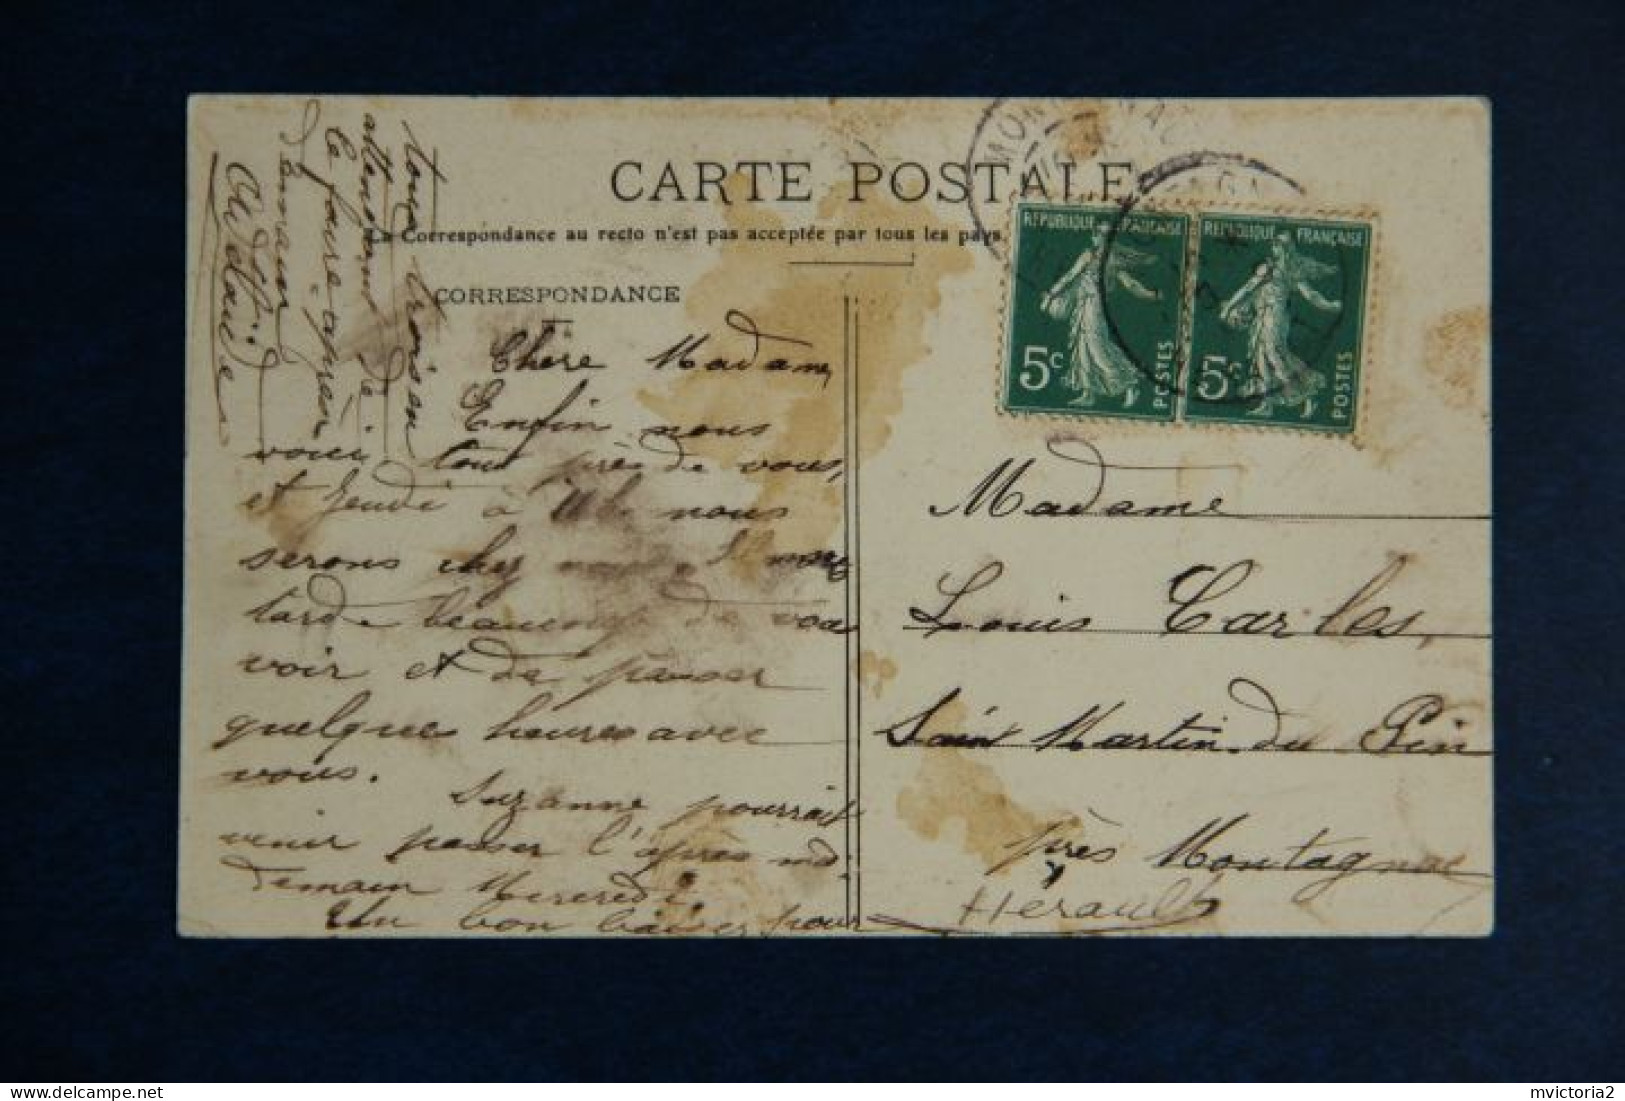 CARTE POSTALE
La Correspondance au recto n'est pas acceptée par tous les pays
CORRESPONDANCE
REPUBLIQUE FRANÇAISE
5c
POSTES
REPUBLIQUE FRANÇAISE
5c
POSTES
Chère Madame,
Enfin nous
voici tout près de vous,
et Jeudi à nous
serons chez
tarde beaucoup de vous
voir et de passer
quelques heures avec
vous.
Suzanne pourrait
venir passer l'après mi
demain Mercredi.
Un bon baiser pour
tous trois en
attendant de
le faire après
demain
Madame
Louis Carles,
Saint Martin du Pin
près Montagnac
Hérault
mvictoria2